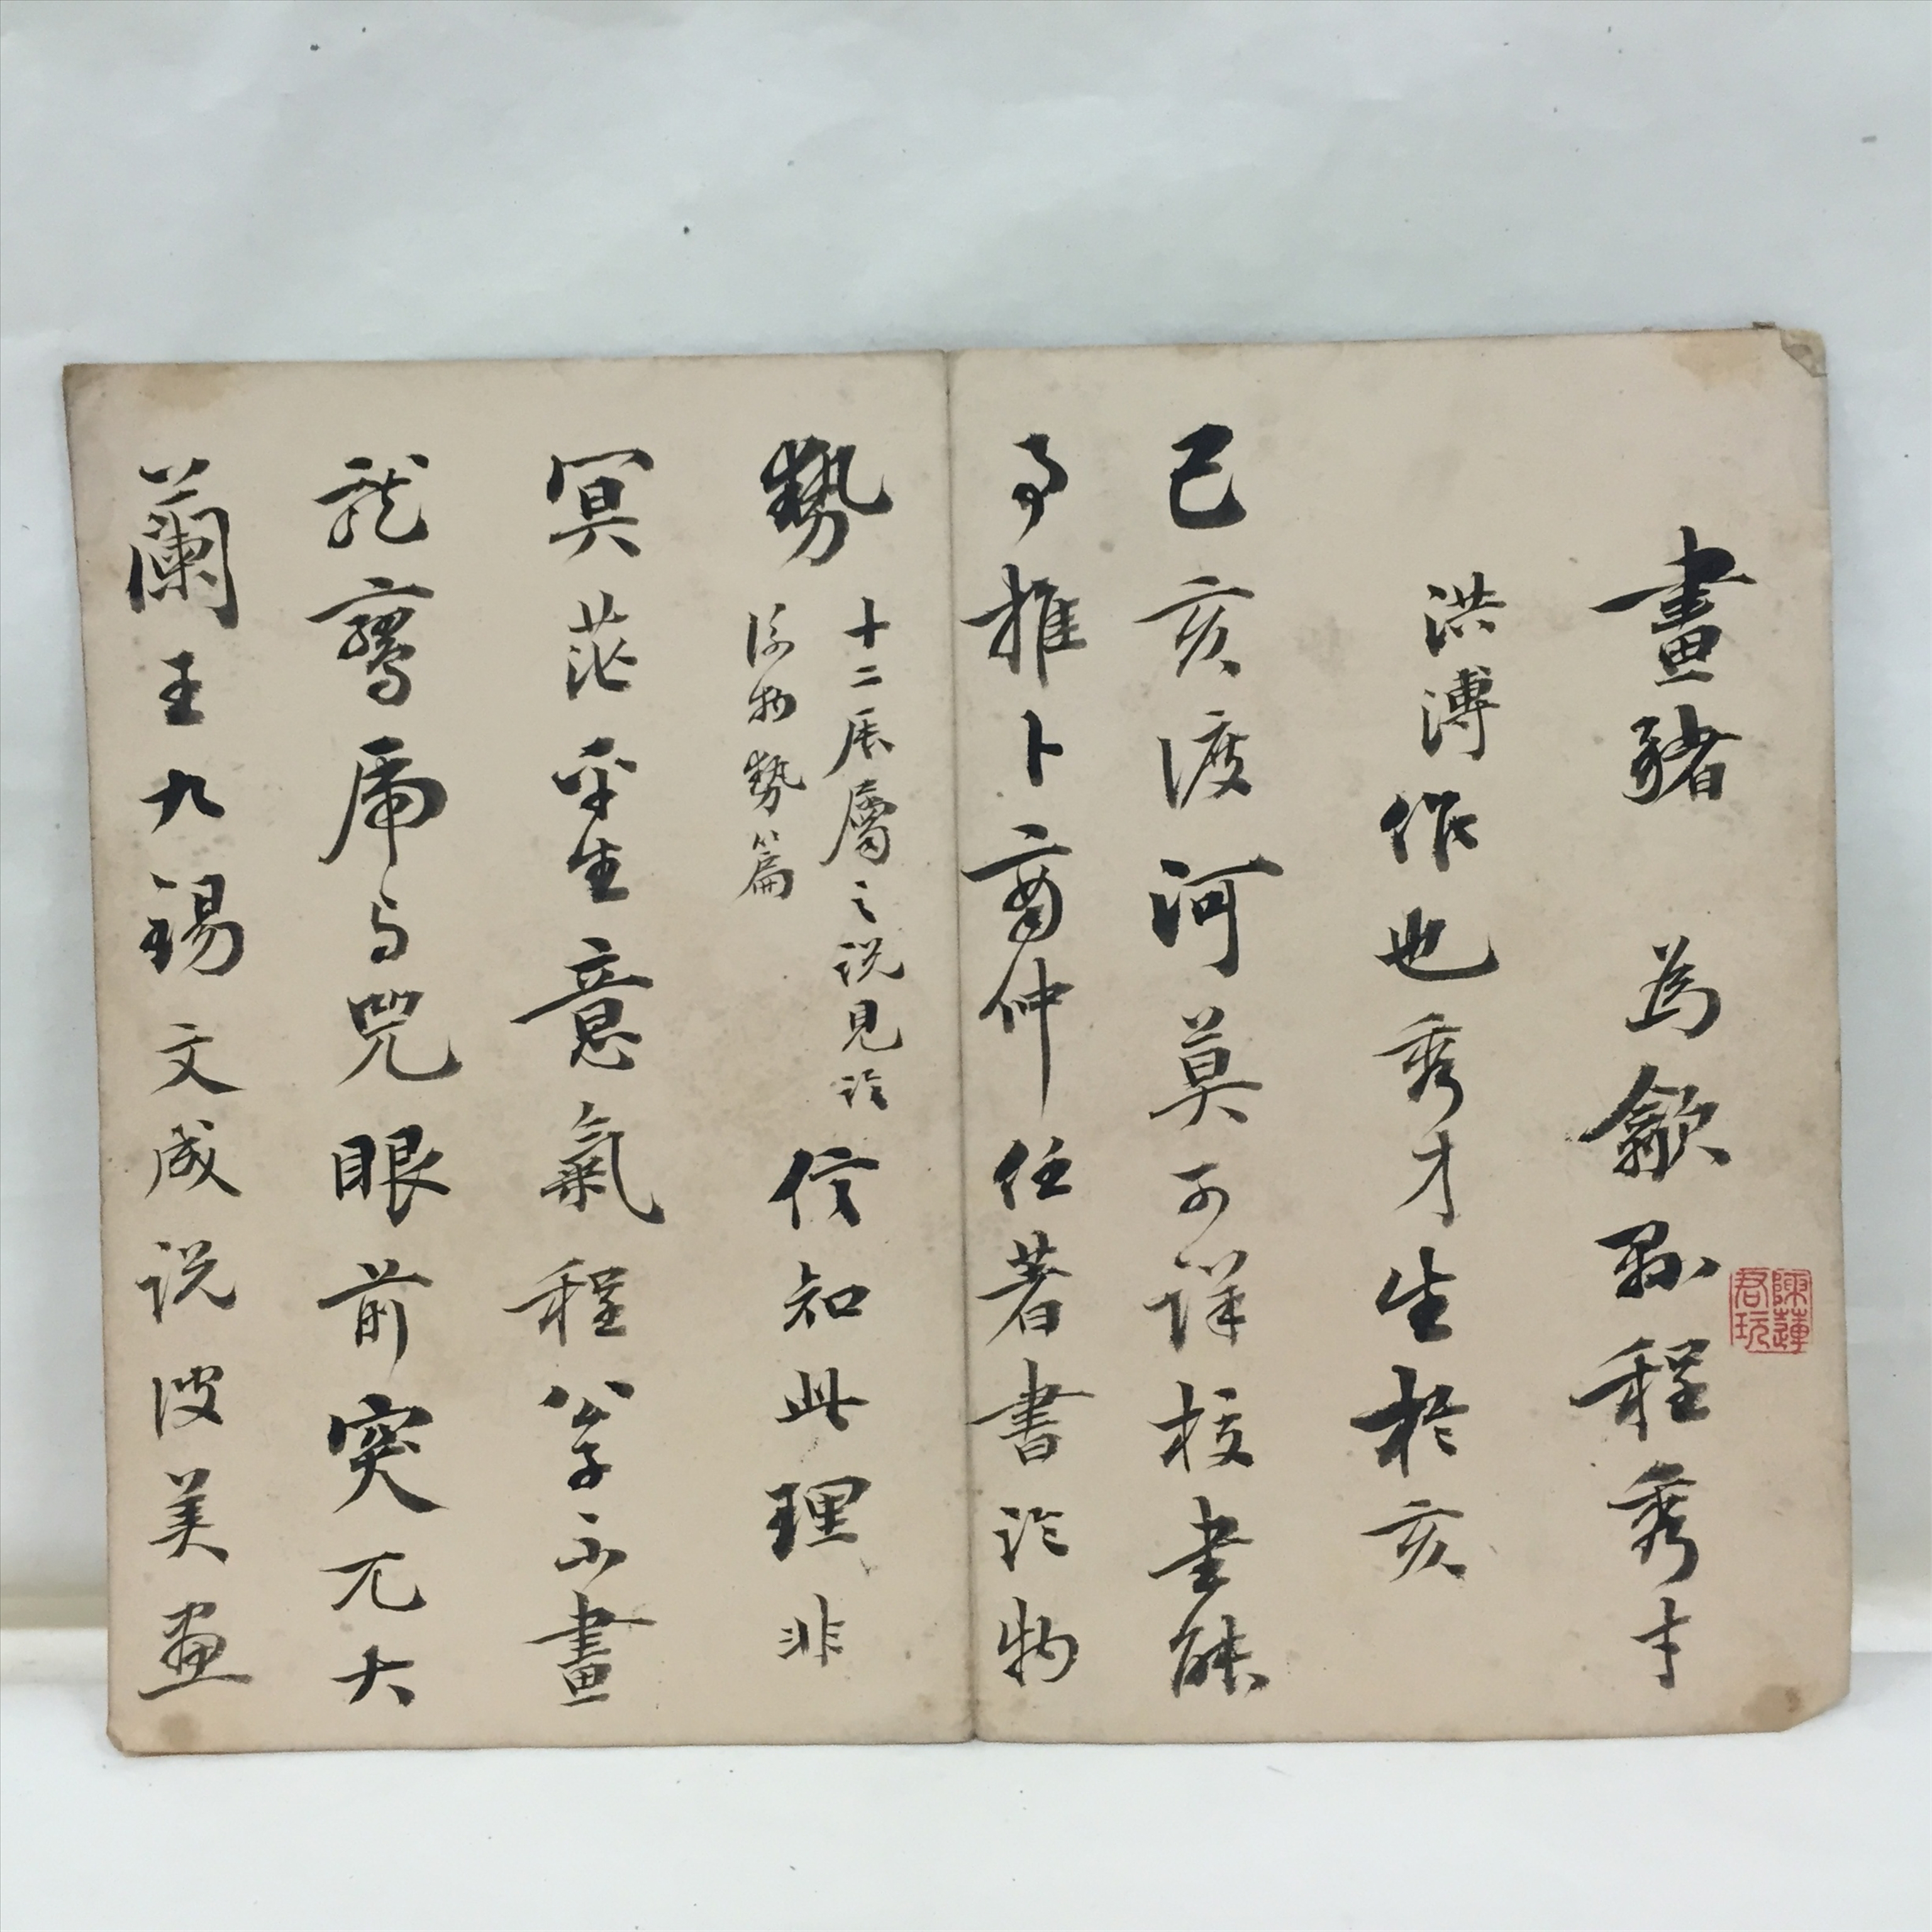 畫豬 為歙縣程秀才
洪溥作也秀才生於亥
己亥渡河莫可詳校書能
事推卜商仲任著書論物
勢
十二辰屬之說見論
衡物勢篇
信知此理非
冥茫平生意氣程公子不畫
龍鸞虎与兕眼前突兀大
蘭王九錫文成說彼美畫
陳蓮